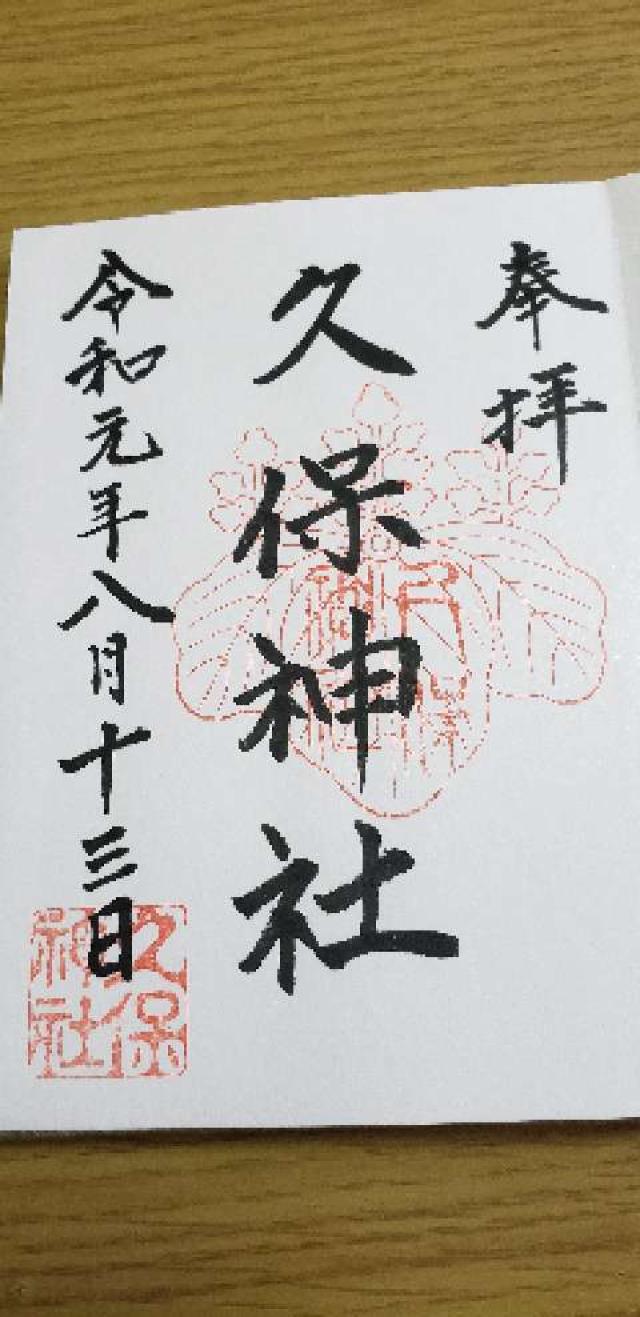 奉拝
久保神社
令和元年八月十三日
久保
神社
久保
神社